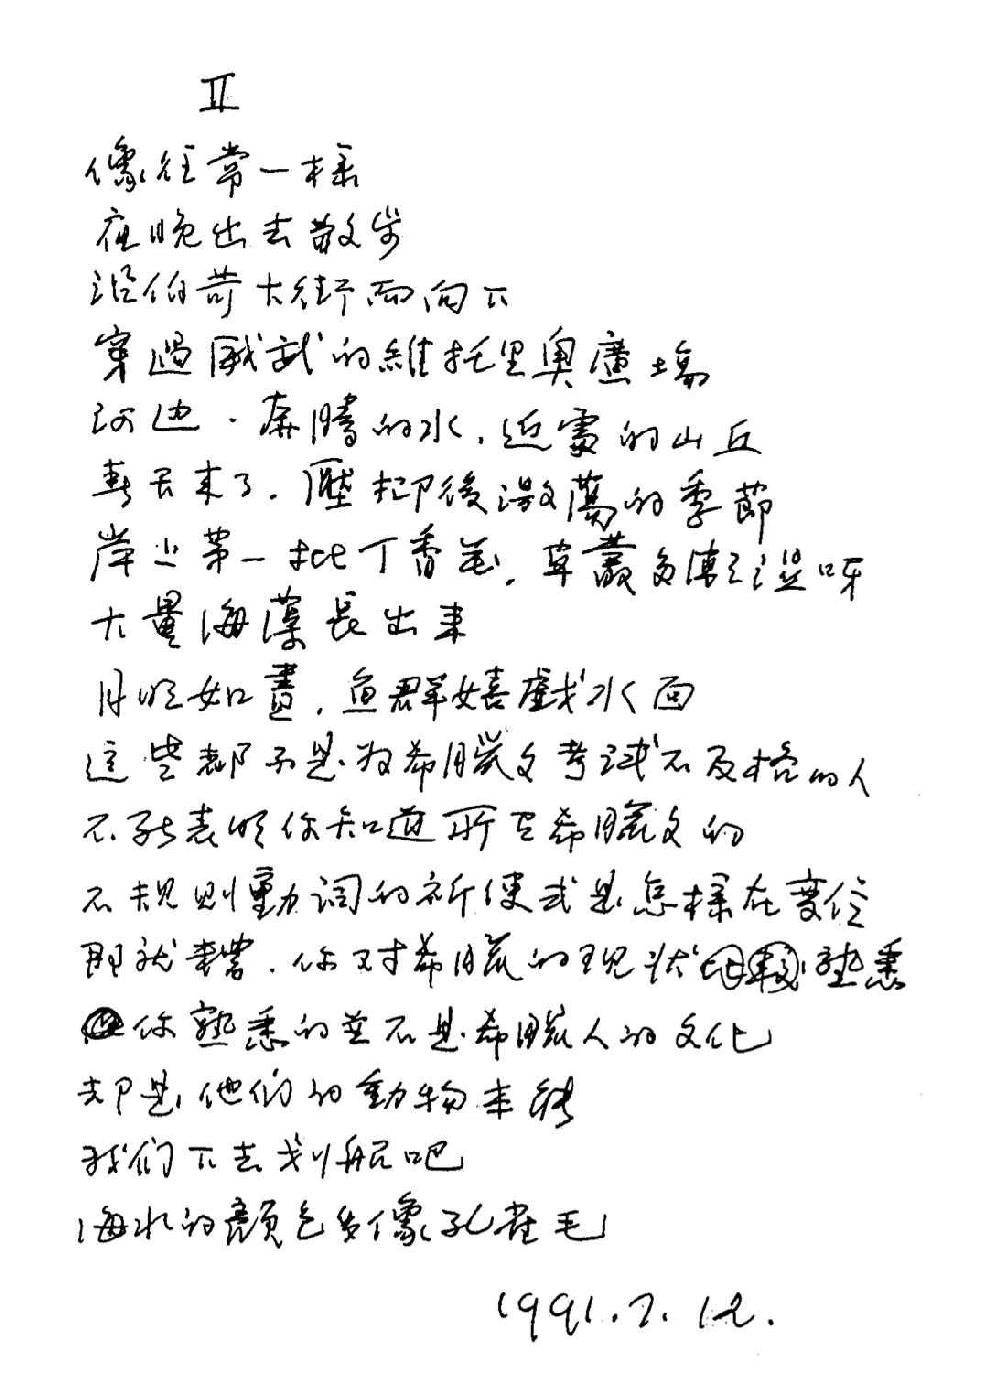 II
像往常一樣
夜晚出去散步
沿伯苛大街而向下
穿過威武的維托里奧廣場
河边．奔騰的水，近處的山丘
春天來了．壓抑後激蕩的季節
岸上第一批丁香花，草叢多薄溼呀
大量海藻長出來
月明如晝，鱼群嬉戲水面
這些都不是为希臘文考試不及格的人
不能表明你知道所有希臘文的
不規則動詞的祈使式是怎樣在變位
即就來說．你对希臘的现状熟悉
你熟悉的並不是希臘人的文化
却是他们的動物本能
我们下去划船吧
海水的顏色多像孔雀毛
1991.7.12.